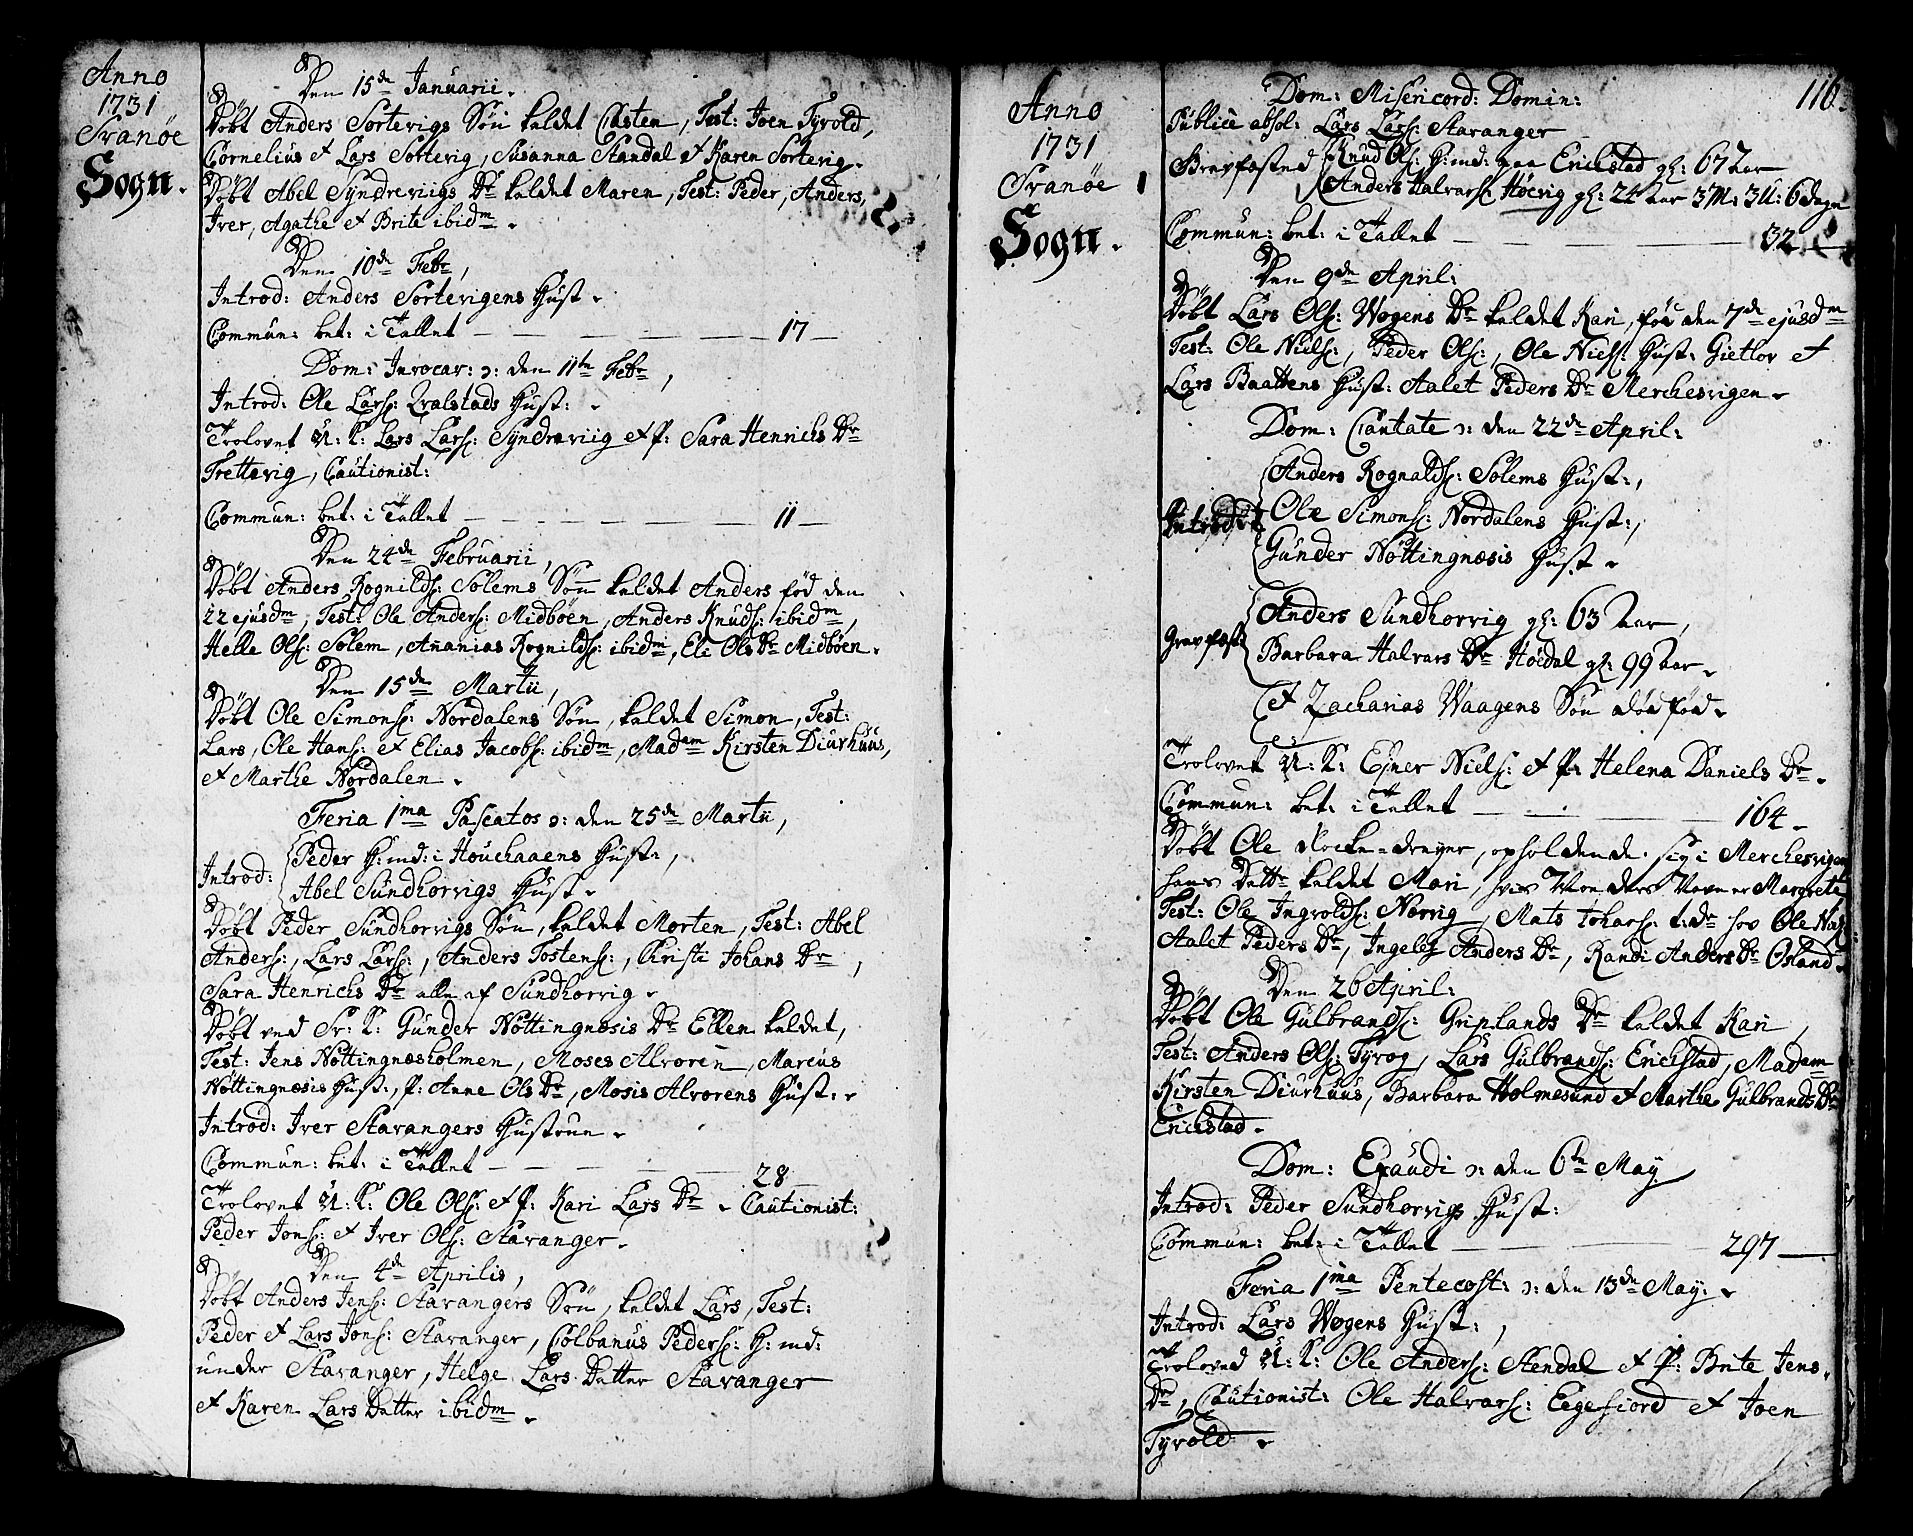 Anno
1731
Svanøe
Sogn.
Den 15de Januarii.
Døbt Anders Sortevigs Søn kaldet Casten, Test: Joen Tyvold,
Cornelius et Lars Sortevig, Susanna Standal et Karen Sortevig.
Døbt Abel Syndreviigs Dr kaldet Maren, Test: Peder, Anders,
Iver, Agathe et Brite ibidm.
Den 10de Febr,
Introd: Anders Sortevigens Hust.
Commun: bet: i Tallet — 17 —
Dom: Invocav: ɔ: den 11te Febr,
Introd: Ole Lars: Qvalstads Hust:.
Trolovet U: K: Lars Lars: Syndreviig et P: Sara Henrichs Dr
Trettevig, Cautionist:
Commun: bet: i Tallet — 11 —
Den 24de Februarii,
Døbt Anders Rognilds: Solems Søn kaldet Anders fød den
22 ejusdm, Test: Ole Anders: Midbøen, Anders Knuds: ibidm,
Helle Ols: Solem, Ananias Rognilds: ibidm, Eli Ols Dr Midbøen.
Den 15de Martii,
Døbt Ole Simons: Nordalens Søn, kaldet Simon, Test:
Lars, Ole Hans: et Elias Jacobs: ibidm, Madam Kirsten Diurhuus,
et Marthe Nordalen.
Feria 1ma Paschatos ɔ: den 25de Martii,
Introd: Peder H:md: i Houchaaens Hust:,
Abel Sundhorvigs Hust.
Døbt Peder Sundhorvigs Søn, kaldet Morten, Test: Abel
Anders:, Lars Lars:, Anders Tostens:, Christi Johans Dr,
Sara Henrichs Dr alle af Sundhorvig.
Døbt ved Sr: K: Gunder Nøttingnæsis Dr Ellen kaldet,
Test: Jens Nøttingnæsholmen, Moses Alvoren, Marcus
Nøttingnæsis Hust:, P: Anne Ols Dr, Mosis Alvorens Hust:.
Introd: Iver Stavangers Hustrue.
Commun: bet: i Tallet — 28 —
Trolovet U: K: Ole Ols: et P: Kari Lars Dr. Cautionist:
Peder Jons: et Iver Ols: Stavanger.
Den 4de Aprilis,
Døbt Anders Jens: Stavangers Søn, kaldet Lars, Test:
Peder et Lars Jons: Stavanger, Colbanus Peders: H:md:
under Stavanger, Helge Lars Datter Stavanger
et Karen Lars Datter ibidm.
116.
Anno
1731
Svanøe
Sogn.
Dom: Misericord: Domin:
Publice absol: Lars Lars: Stavanger
Gravfæsted Knud Ols: H:md: paa Erickstad gl: 67 Aar
Anders Halvars: Høevig gl: 24 aar 3 M: 3 U: 6 dage
Commun: bet: i Tallet — 32
Den 9de April:
Døbt Lars Ols: Wogens Dr kaldet Kari, fød den 7de ejusdm
Test: Ole Niels:, Peder Ols:, Ole Niels: Hust: Gietlov et
Lars Baattens Hust: Aalet Peders Dr Merchesvigen.
Dom: Cantate ɔ: den 22de April:
Introd: Anders Rognalds: Solems Hust:,
Ole Simons: Nordalens Hust:,
Gunder Nøttingnæsis Hust.
Gravfæst: Anders Sundhorvig gl: 63 Aar,
Barbara Halvars Dr Høedal gl: 99 aar.
et Zacharias Waagens Søn død fød.
Trolovet U: K: Ejner Niels: et P: Helena Daniels Dr.
Commun: bet: i Tallet — 164.
Døbt Ole Klocke-dreyer, opholdende sig i Merchesvigen
hans Dattr kaldet Mari, hvis Moeders Navn er Margrete
Test: Ole Ingvolds: Norvig, Mats Johans: t:de hos Ole
Aalet Peders Dr, Ingeleg Anders Dr, Randi Anders Dr Osland.
Den 26 April:
Døbt Ole Gulbrands: Griplands Dr kaldet Kari,
Test: Anders Ols: Tyvog, Lars Gulbrands: Erickstad, Madam
Kirsten Diurhuus, Barbara Holmesund et Marthe Gulbrands Dr
Erickstad.
Dom: Exaudi ɔ: den 6te May
Introd: Peder Sundhorvigs Hust:
Commun: bet: i Tallet — 297 —
Feria 1ma Pentecost: ɔ: den 13de May.
Introd: Lars Wogens Hust:,
Troloved U: K: Ole Anders: Stendal et P: Brite Jens
Dr, Cautionist: Ole Halvars: Eegefiord et Joen
Tyvold.